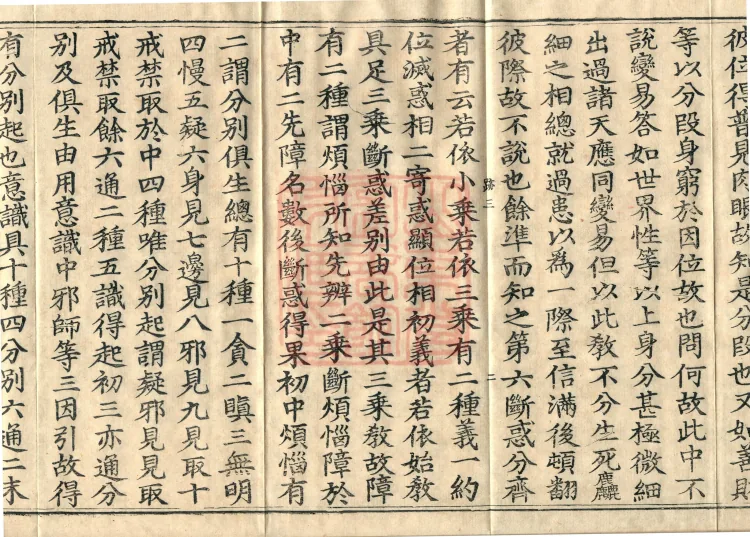 彼位得普見肉眼故知是分段也又如善財
等以分段身窮於因位故也問何故此中不
說變易答如世界性等以上身分甚極微細
出過諸天應同變易但以此教不分生死麤
細之相總就過患以為一際至信滿後頓翻
彼際故不說也餘準而知之第六斷惑分齊
跡三
二
者有云若依小乘若依三乘有二種義一約
位滅惑相二寄惑顯位相初義者若依始教
具足三乘斷惑差別由此是其三乘教故障
有二種謂煩惱所知先辨二乘斷煩惱障於
中有二先障名數後斷惑得果初中煩惱有
二謂分別俱生總有十種一貪二瞋三無明
四慢五疑六身見七邊見八邪見九見取十
戒禁取於中四種唯分別起謂疑邪見見取
戒禁取餘六通二種五識得起初三亦通分
別及俱生由用意識中邪師等三因引故得
有分別起也意識具十種四分別六通二末